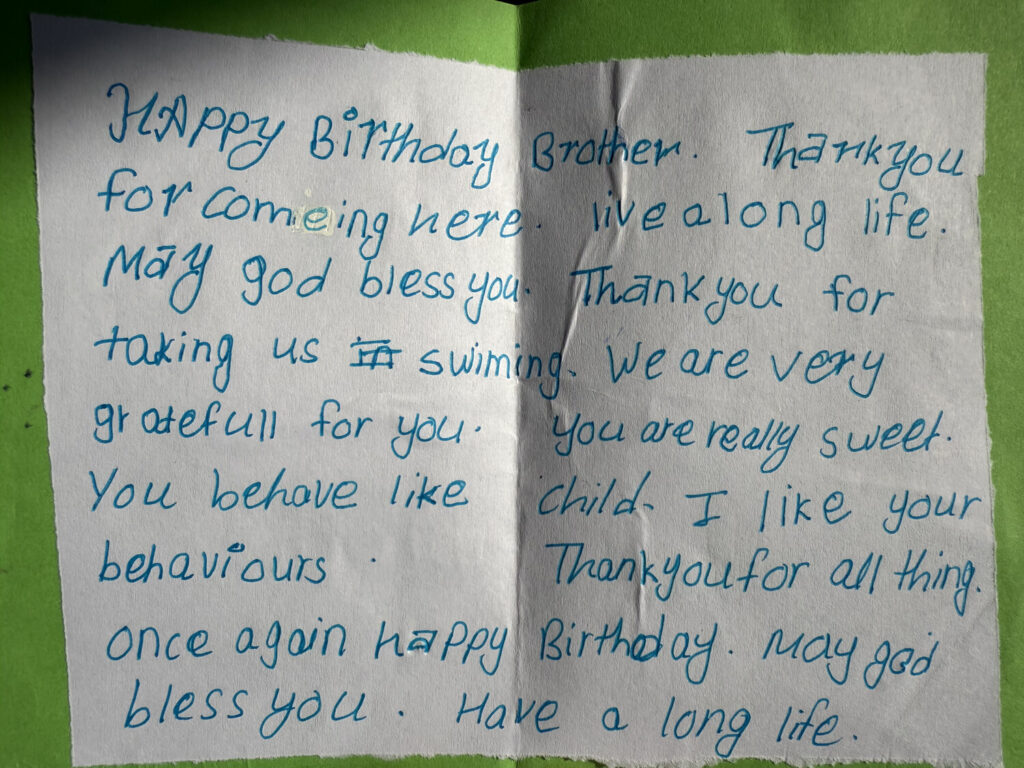 HAppy Birthday Brother. Thankyou
for comeing here. live a long life.
May god bless you. Thank you for
taking us in swiming. We are very
gratefull for you. you are really sweet.
You behave like child. I like your
behaviours. Thankyou for all thing.
once again happy Birthday. May god
bless you. Have a long life.